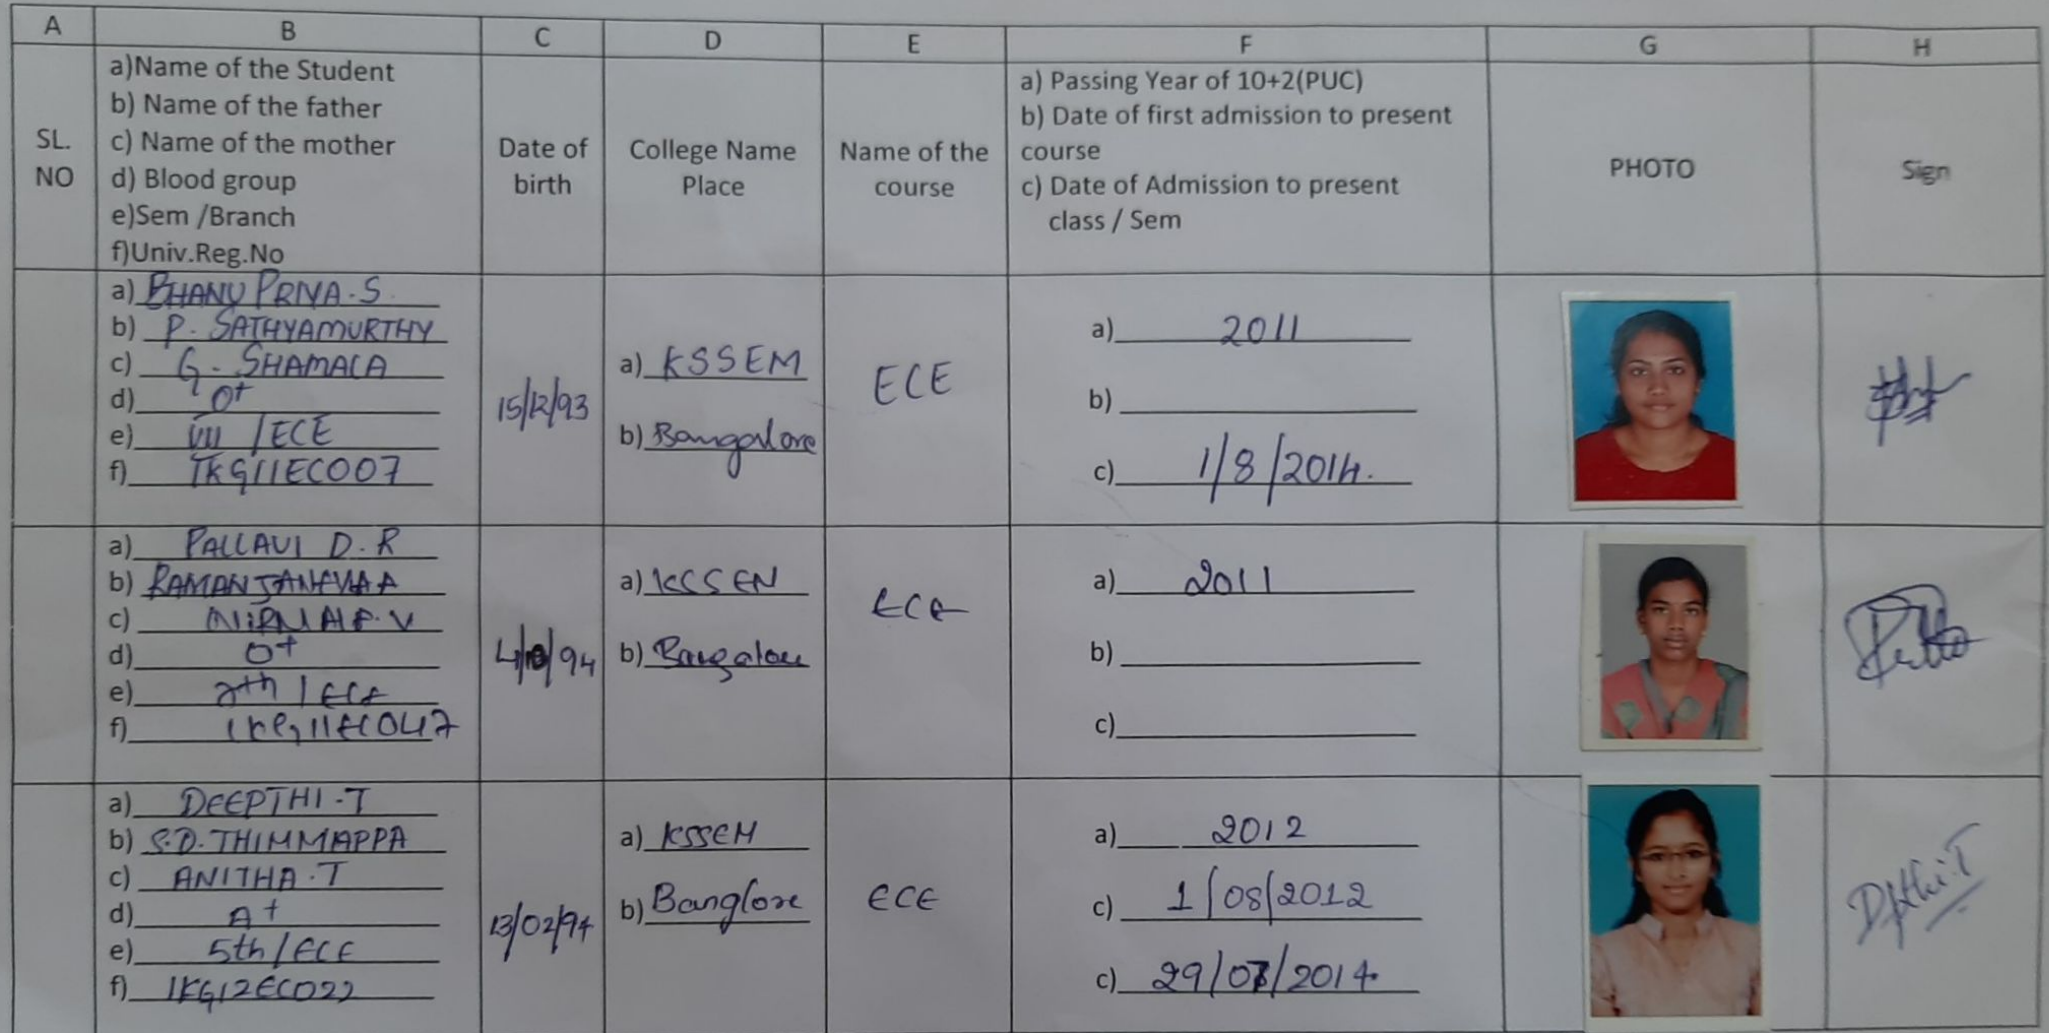 A B C D E F G H
SL. NO
a)Name of the Student
b) Name of the father
c) Name of the mother
d) Blood group
e)Sem /Branch
f)Univ.Reg.No
Date of
birth
College Name
Place
Name of the
course
a) Passing Year of 10+2(PUC)
b) Date of first admission to present
course
c) Date of Admission to present
class / Sem
PHOTO
Sign
a) BHANU PRIYA.S
b) P. SATHYAMURTHY
c) G. SHAMALA
d) O+
e) VII / ECE
f) 1KG11EC007
15/12/93
a) KSSEM
b) Bangalore
ECE
a) 2011
b)
c) 1/8/2014.
a) PALLAVI D.R
b) RAMANJANEYAA
c)
d) O+
e) 7th / ECE
f) 1KG11EC047
a) KSSEM
b) Bangalore
ECE
a) 2011
b)
c)
a) DEEPTHI.T
b) S.D. THIMMAPPA
c) ANITHA.T
d) A+
e) 5th / ECE
f) 1KG12EC022
13/02/94
a) KSSEM
b) Banglore
ECE
a) 2012
c) 1/08/2012
c) 29/07/2014